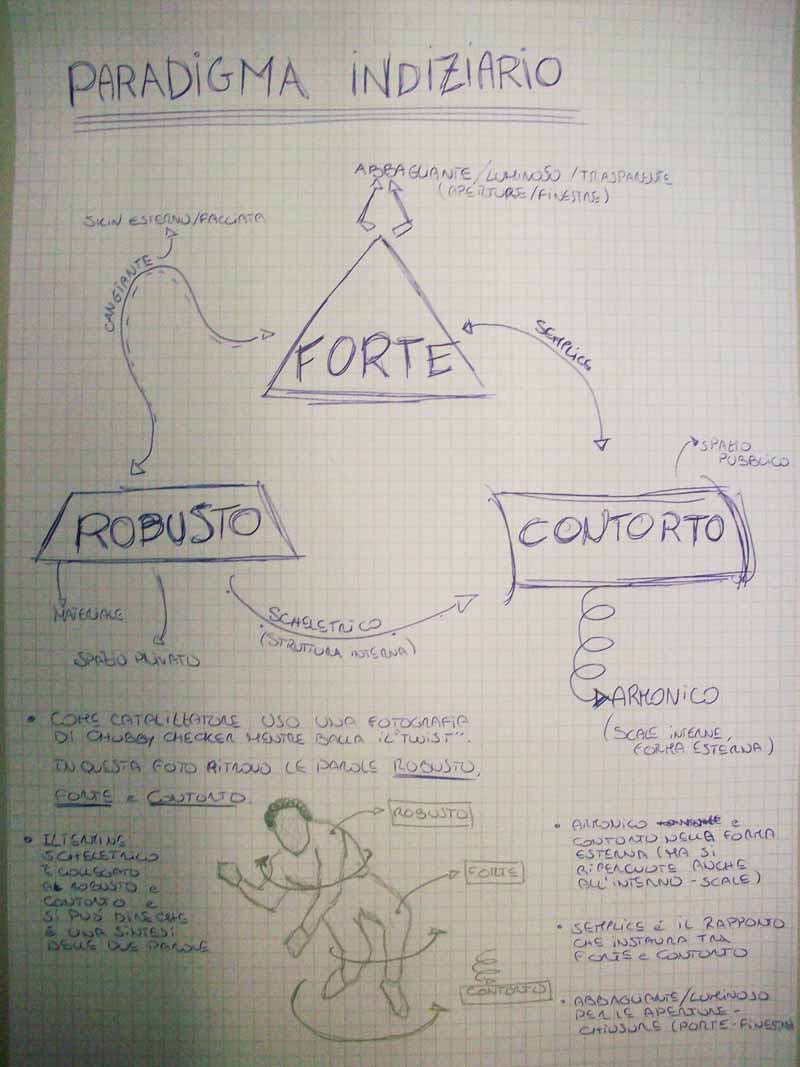 PARADIGMA INDIZIARIO
ABBAGLIANTE/LUMINOSO/TRASPARENTE
(APERTURE/FINESTRE)
SKIN ESTERNO/FACCIATA
CANGIANTE
FORTE
SEMPLICE
SPAZIO
PUBBLICO
ROBUSTO
CONTORTO
MATERIALE
SPAZIO PRIVATO
SCHELETRICO
(STRUTTURA INTERNA)
ARMONICO
(SCALE INTERNE,
FORMA ESTERNA)
• COME CATALIZZATORE USO UNA FOTOGRAFIA
DI CHUBBY CHECKER MENTRE BALLA IL "TWIST".
IN QUESTA FOTO RITROVO LE PAROLE ROBUSTO,
FORTE e CONTORTO.
ROBUSTO
FORTE
CONTORTO
• IL TERMINE
SCHELETRICO
È COLLEGATO
AL ROBUSTO e
CONTORTO e
SI PUÒ DIRE CHE
È UNA SINTESI
DELLE DUE PAROLE
• ARMONICO e
CONTORTO NELLA FORMA
ESTERNA (MA SI
RIPERCUOTE ANCHE
ALL'INTERNO-SCALE)
• SEMPLICE É IL RAPPORTO
CHE INSTAURA TRA
FORTE e CONTORTO
• ABBAGLIANTE/LUMINOSO
PER LE APERTURE-
CHIUSURE (PORTE-FINESTRE)